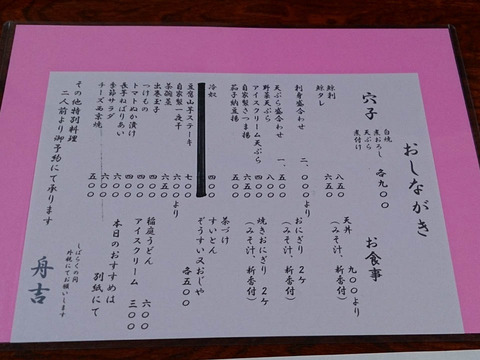 おしながき
穴子
白焼
煮おろし
天ぷら
煮付け
各九〇〇
鯨刺 八五〇
鯨タレ 六五〇
刺身盛合わせ 二、〇〇〇より
天ぷら盛合わせ 一、五〇〇
野菜天ぷら 八〇〇
アイスクリーム天ぷら 四五〇
自家製さつま揚 六五〇
茄子納豆揚 六五〇
冷奴 四〇〇
山芋ステーキ 七〇〇
自家製一夜干 六五〇より
茶碗蒸 六五〇
出巻玉子 六五〇
つけもの 四〇〇
トマトぬか漬け 四〇〇
長芋ねばりあい
季節サラダ
チーズ西京焼 五〇〇
その他特別料理
二人前より御予約にて承ります
お食事
天丼 九〇〇より
（みそ汁、新香付）
おにぎり 2ケ
（みそ汁、新香付）
焼きおにぎり 2ケ
（みそ汁、新香付）
茶づけ
すいとん
ぞうすい又おじや
各五〇〇
稲庭うどん 六〇〇
アイスクリーム 三〇〇
本日のおすすめは
別紙にて
しばらくの間
外税にてお願いします
舟吉